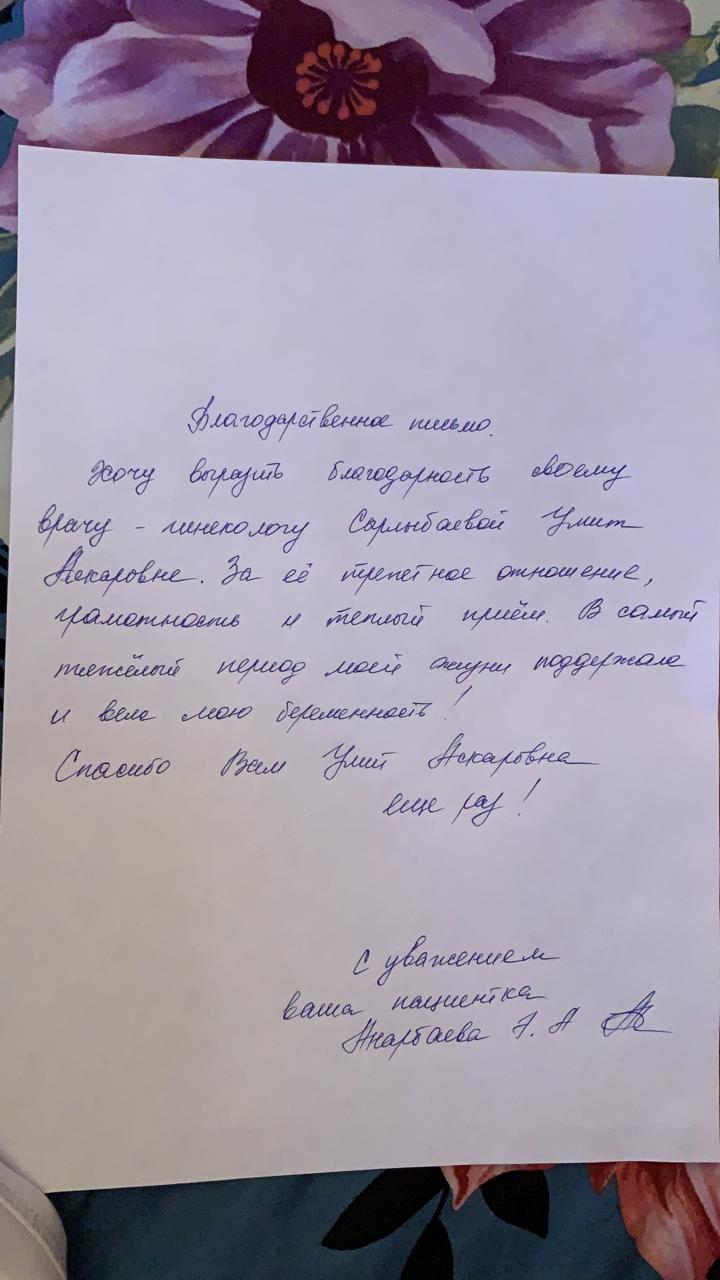 Благодарственное письмо.
Хочу выразить благодарность своему
врачу - гинекологу Сарлыбаевой Умит
Аскаровне. За её трепетное отношение,
грамотность и теплый приём. В самый
тяжёлый период моей жизни поддержала
и вела мою беременность!
Спасибо Вам Умит Аскаровна
еще раз!
С уважением
ваша пациентка
Анарбаева А. А